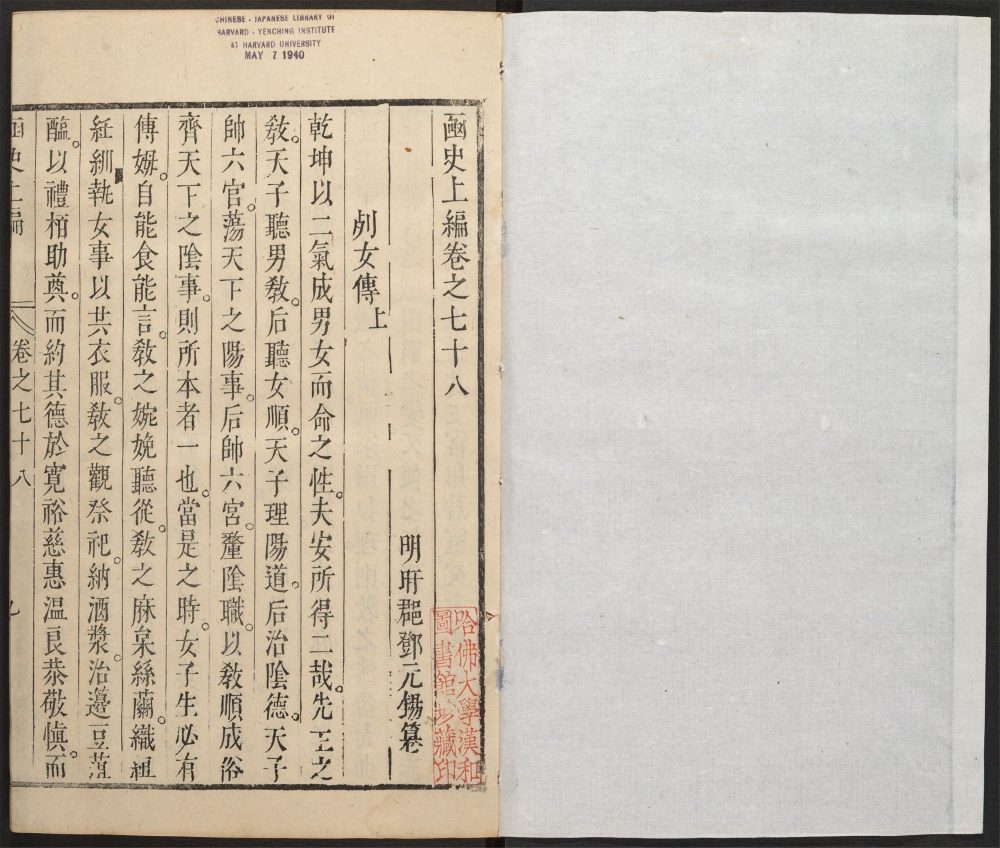 CHINESE - JAPANESE LIBRARY OF
HARVARD - YENCHING INSTITUTE
AT HARVARD UNIVERSITY
MAY 7 1940
函史上編卷之七十八
明盱郡鄧元錫纂
哈佛大學漢和
圖書館珍藏印
列女傳上
乾坤以二氣成男女而命之性夫安所得二哉。先王之
教。天子聽男教。后聽女順。天子理陽道。后治陰德。天子
帥六官。蕩天下之陽事。后帥六宮。釐陰職。以教順成俗
齊天下之陰事。則所本者一也。當是之時。女子生必有
傅姆。自能食能言。教之婉娩聽從。教之麻枲絲繭。織紝
紅紃執女事以共衣服。教之觀祭祀。納酒漿。治籩豆菹
醢。以禮相助奠。而約其德於寬裕慈惠溫良恭敬慎。而
函史上編
卷之七十八